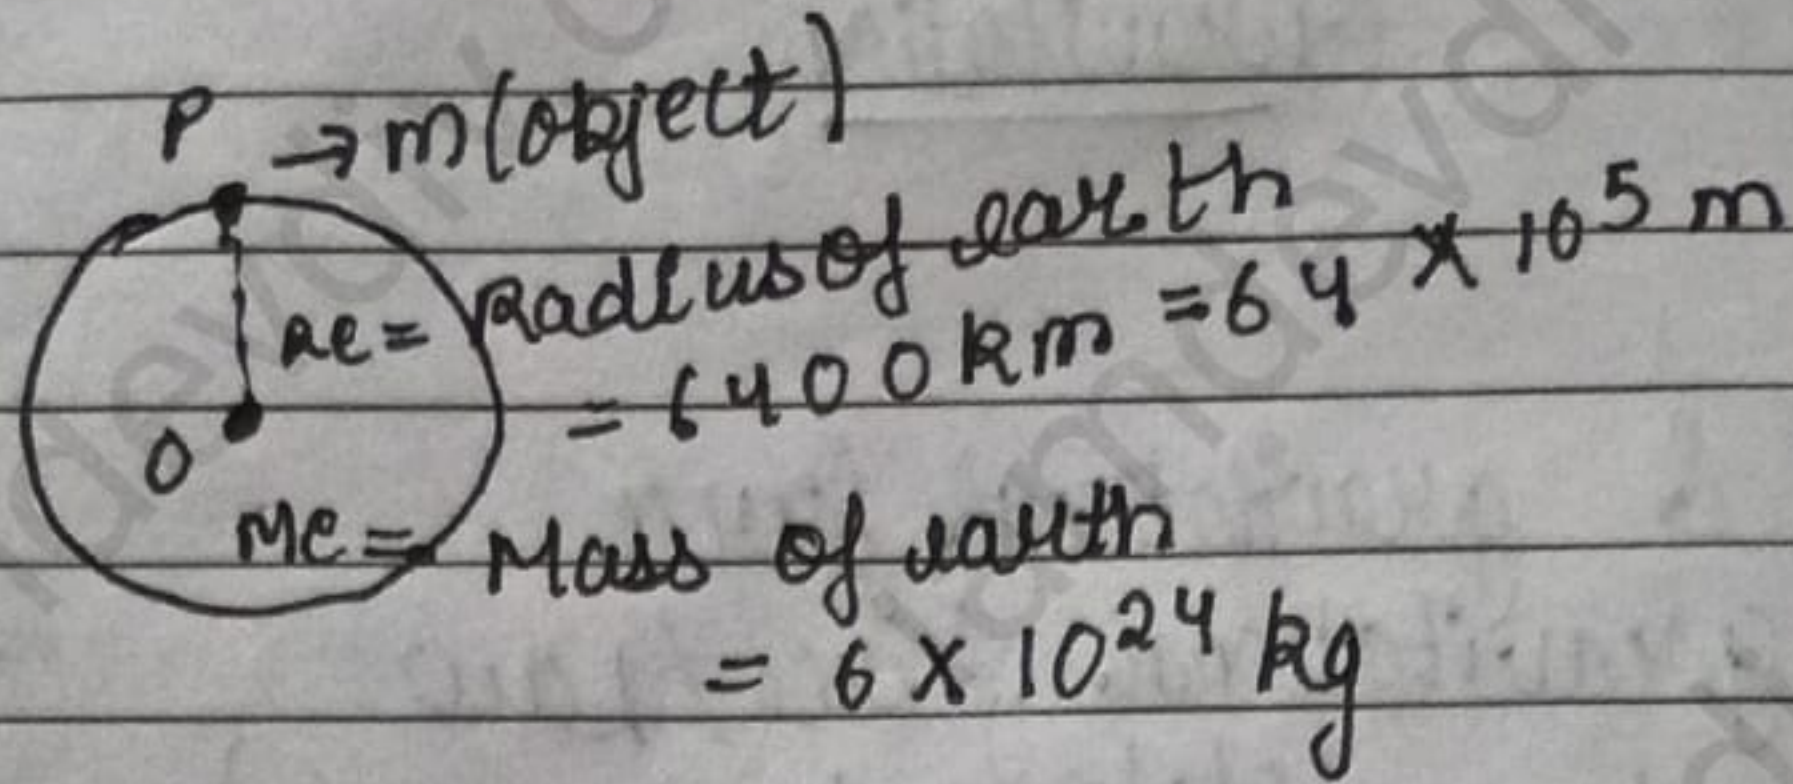 P → m(object)
Re = Radius of earth
= 6400 km = 64 × 10⁵ m
O
Me = Mass of earth
= 6 × 10²⁴ kg